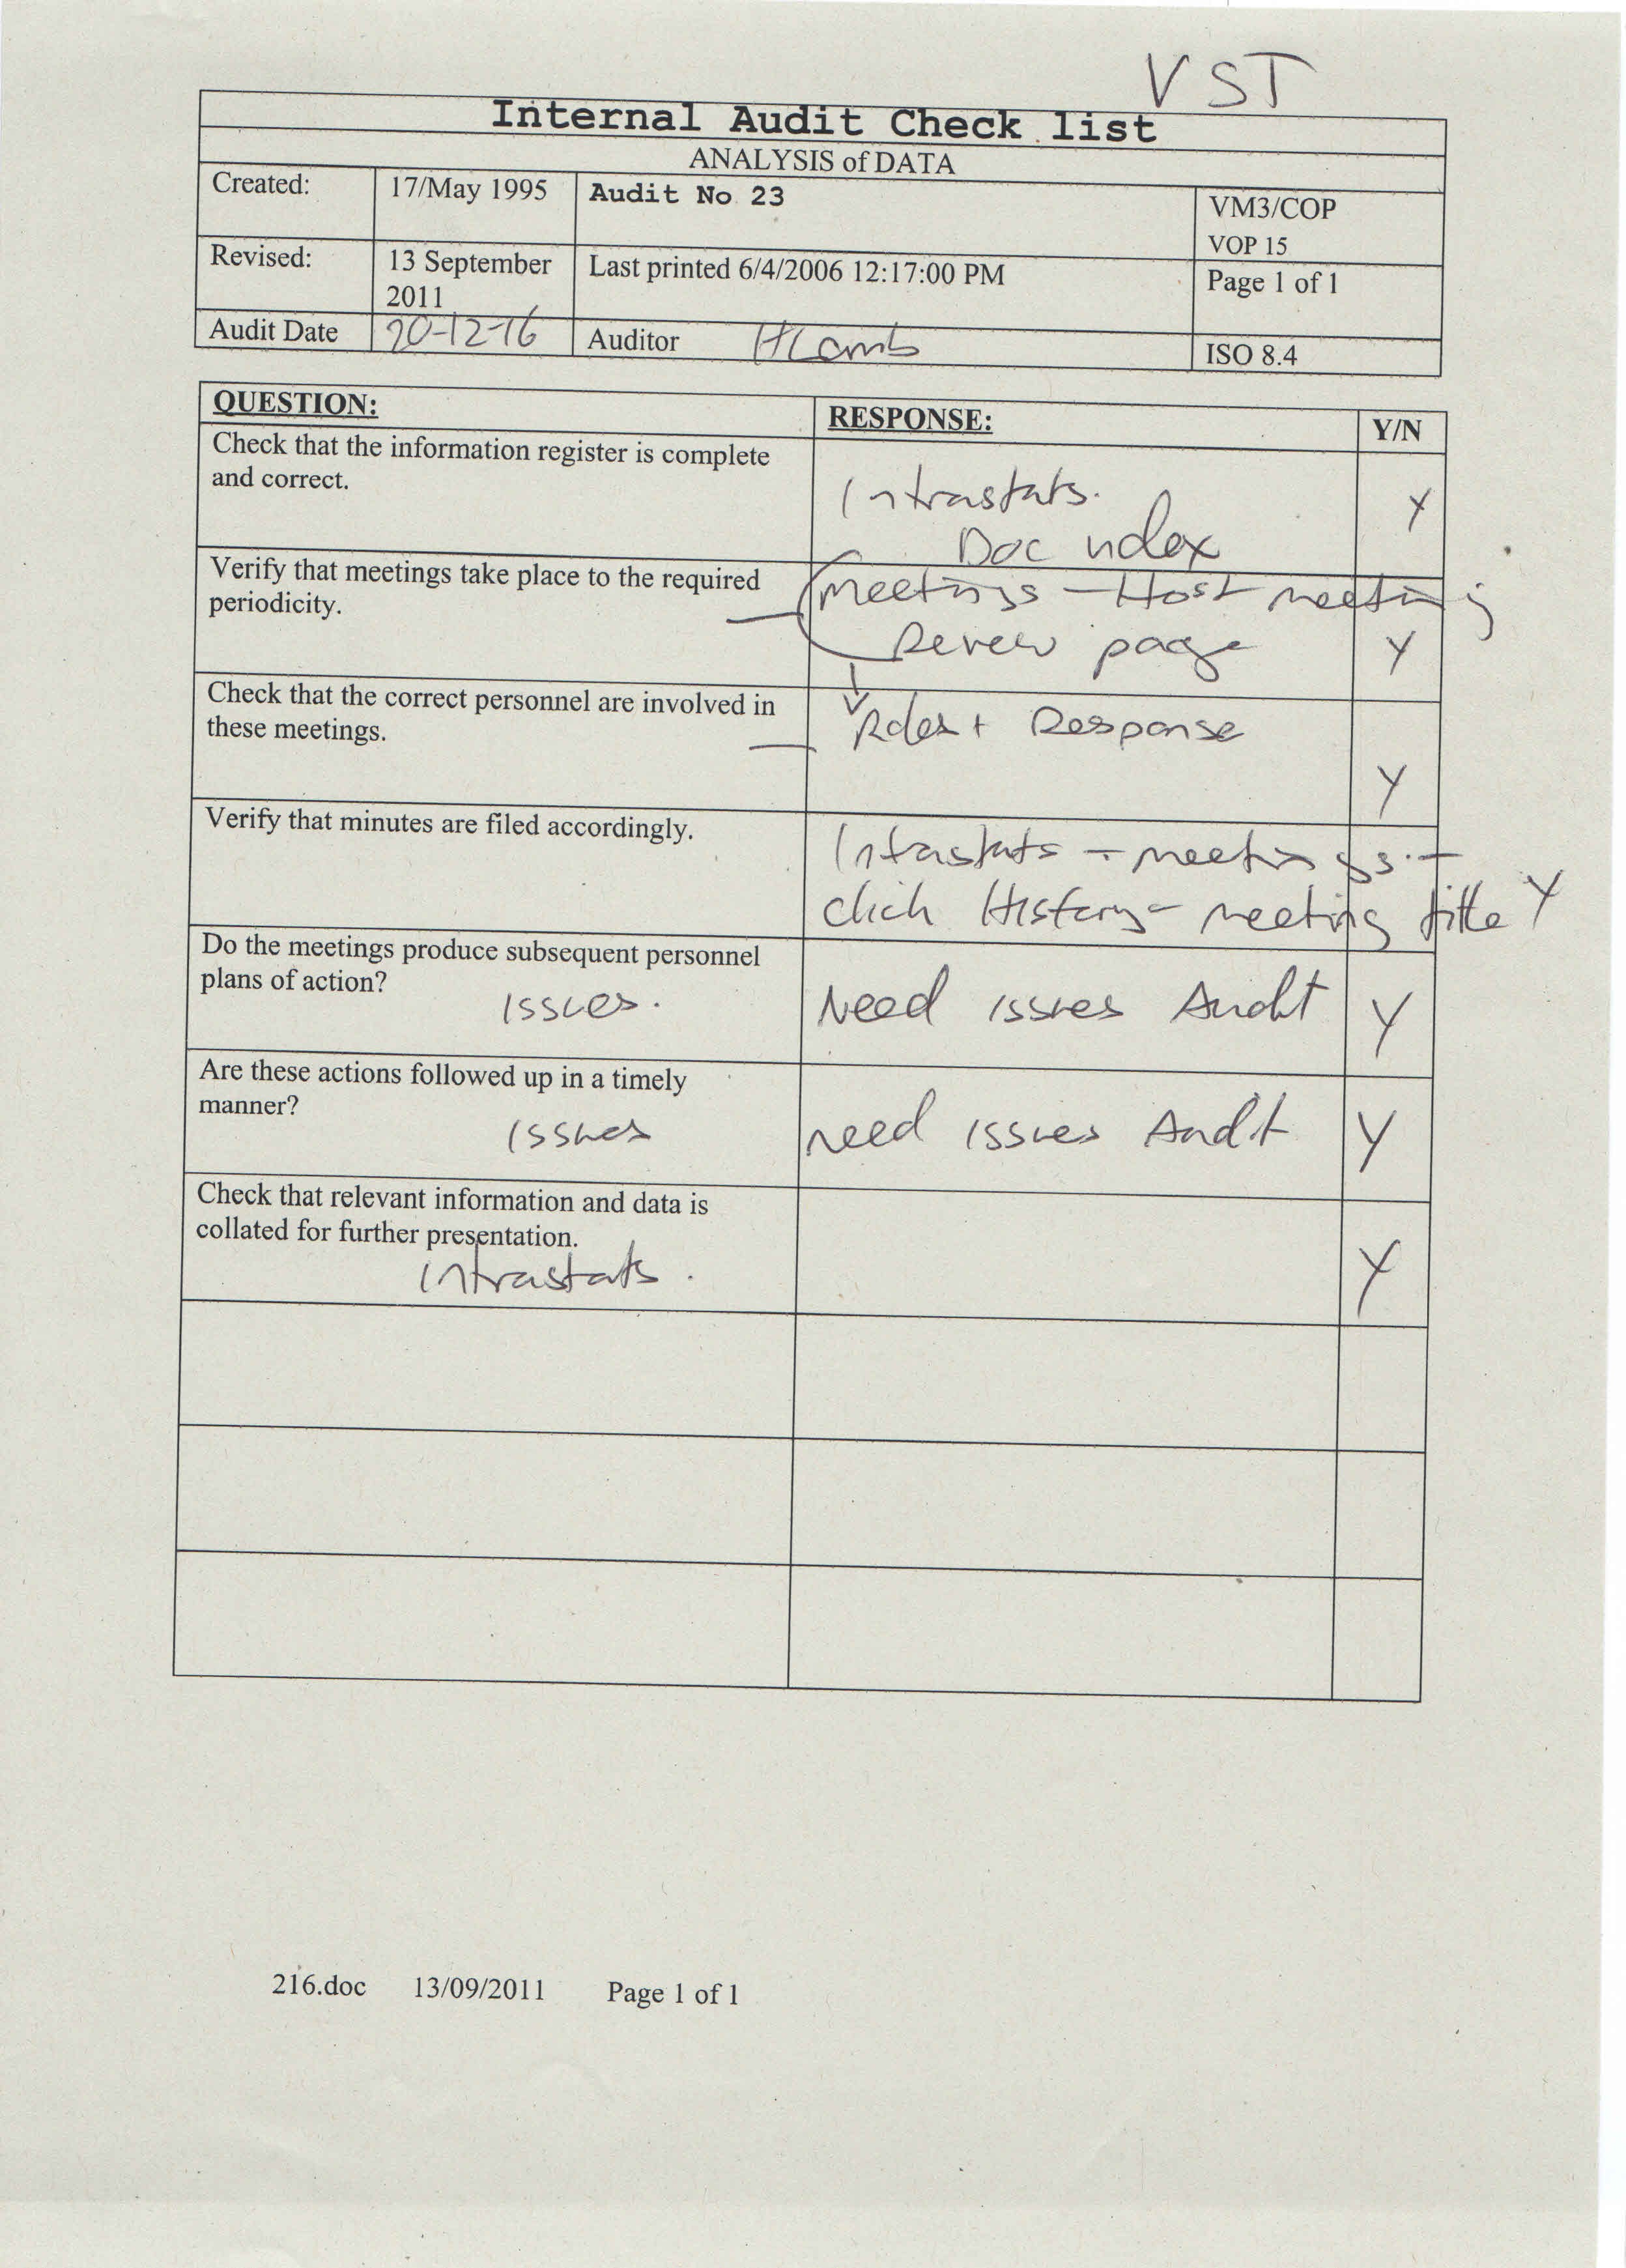 VST
Internal Audit Check list
ANALYSIS of DATA
Created: 17/May 1995 Audit No 23 VM3/COP
VOP 15
Revised: 13 September 2011 Last printed 6/4/2006 12:17:00 PM Page 1 of 1
Audit Date 20-12-16 Auditor HLamb ISO 8.4
QUESTION: RESPONSE: Y/N
Check that the information register is complete
and correct.
Intrastats.
Doc index
Y
Verify that meetings take place to the required
periodicity.
Meetings - Host meeting
Review page
Y
Check that the correct personnel are involved in
these meetings.
Roles + Response
Y
Verify that minutes are filed accordingly.
Intrastats - meetings -
click History - meeting title Y
Do the meetings produce subsequent personnel
plans of action?
Issues.
Need issues Audit
Y
Are these actions followed up in a timely
manner?
Issues
need issues Audit
Y
Check that relevant information and data is
collated for further presentation.
Intrastats.
Y
216.doc 13/09/2011 Page 1 of 1